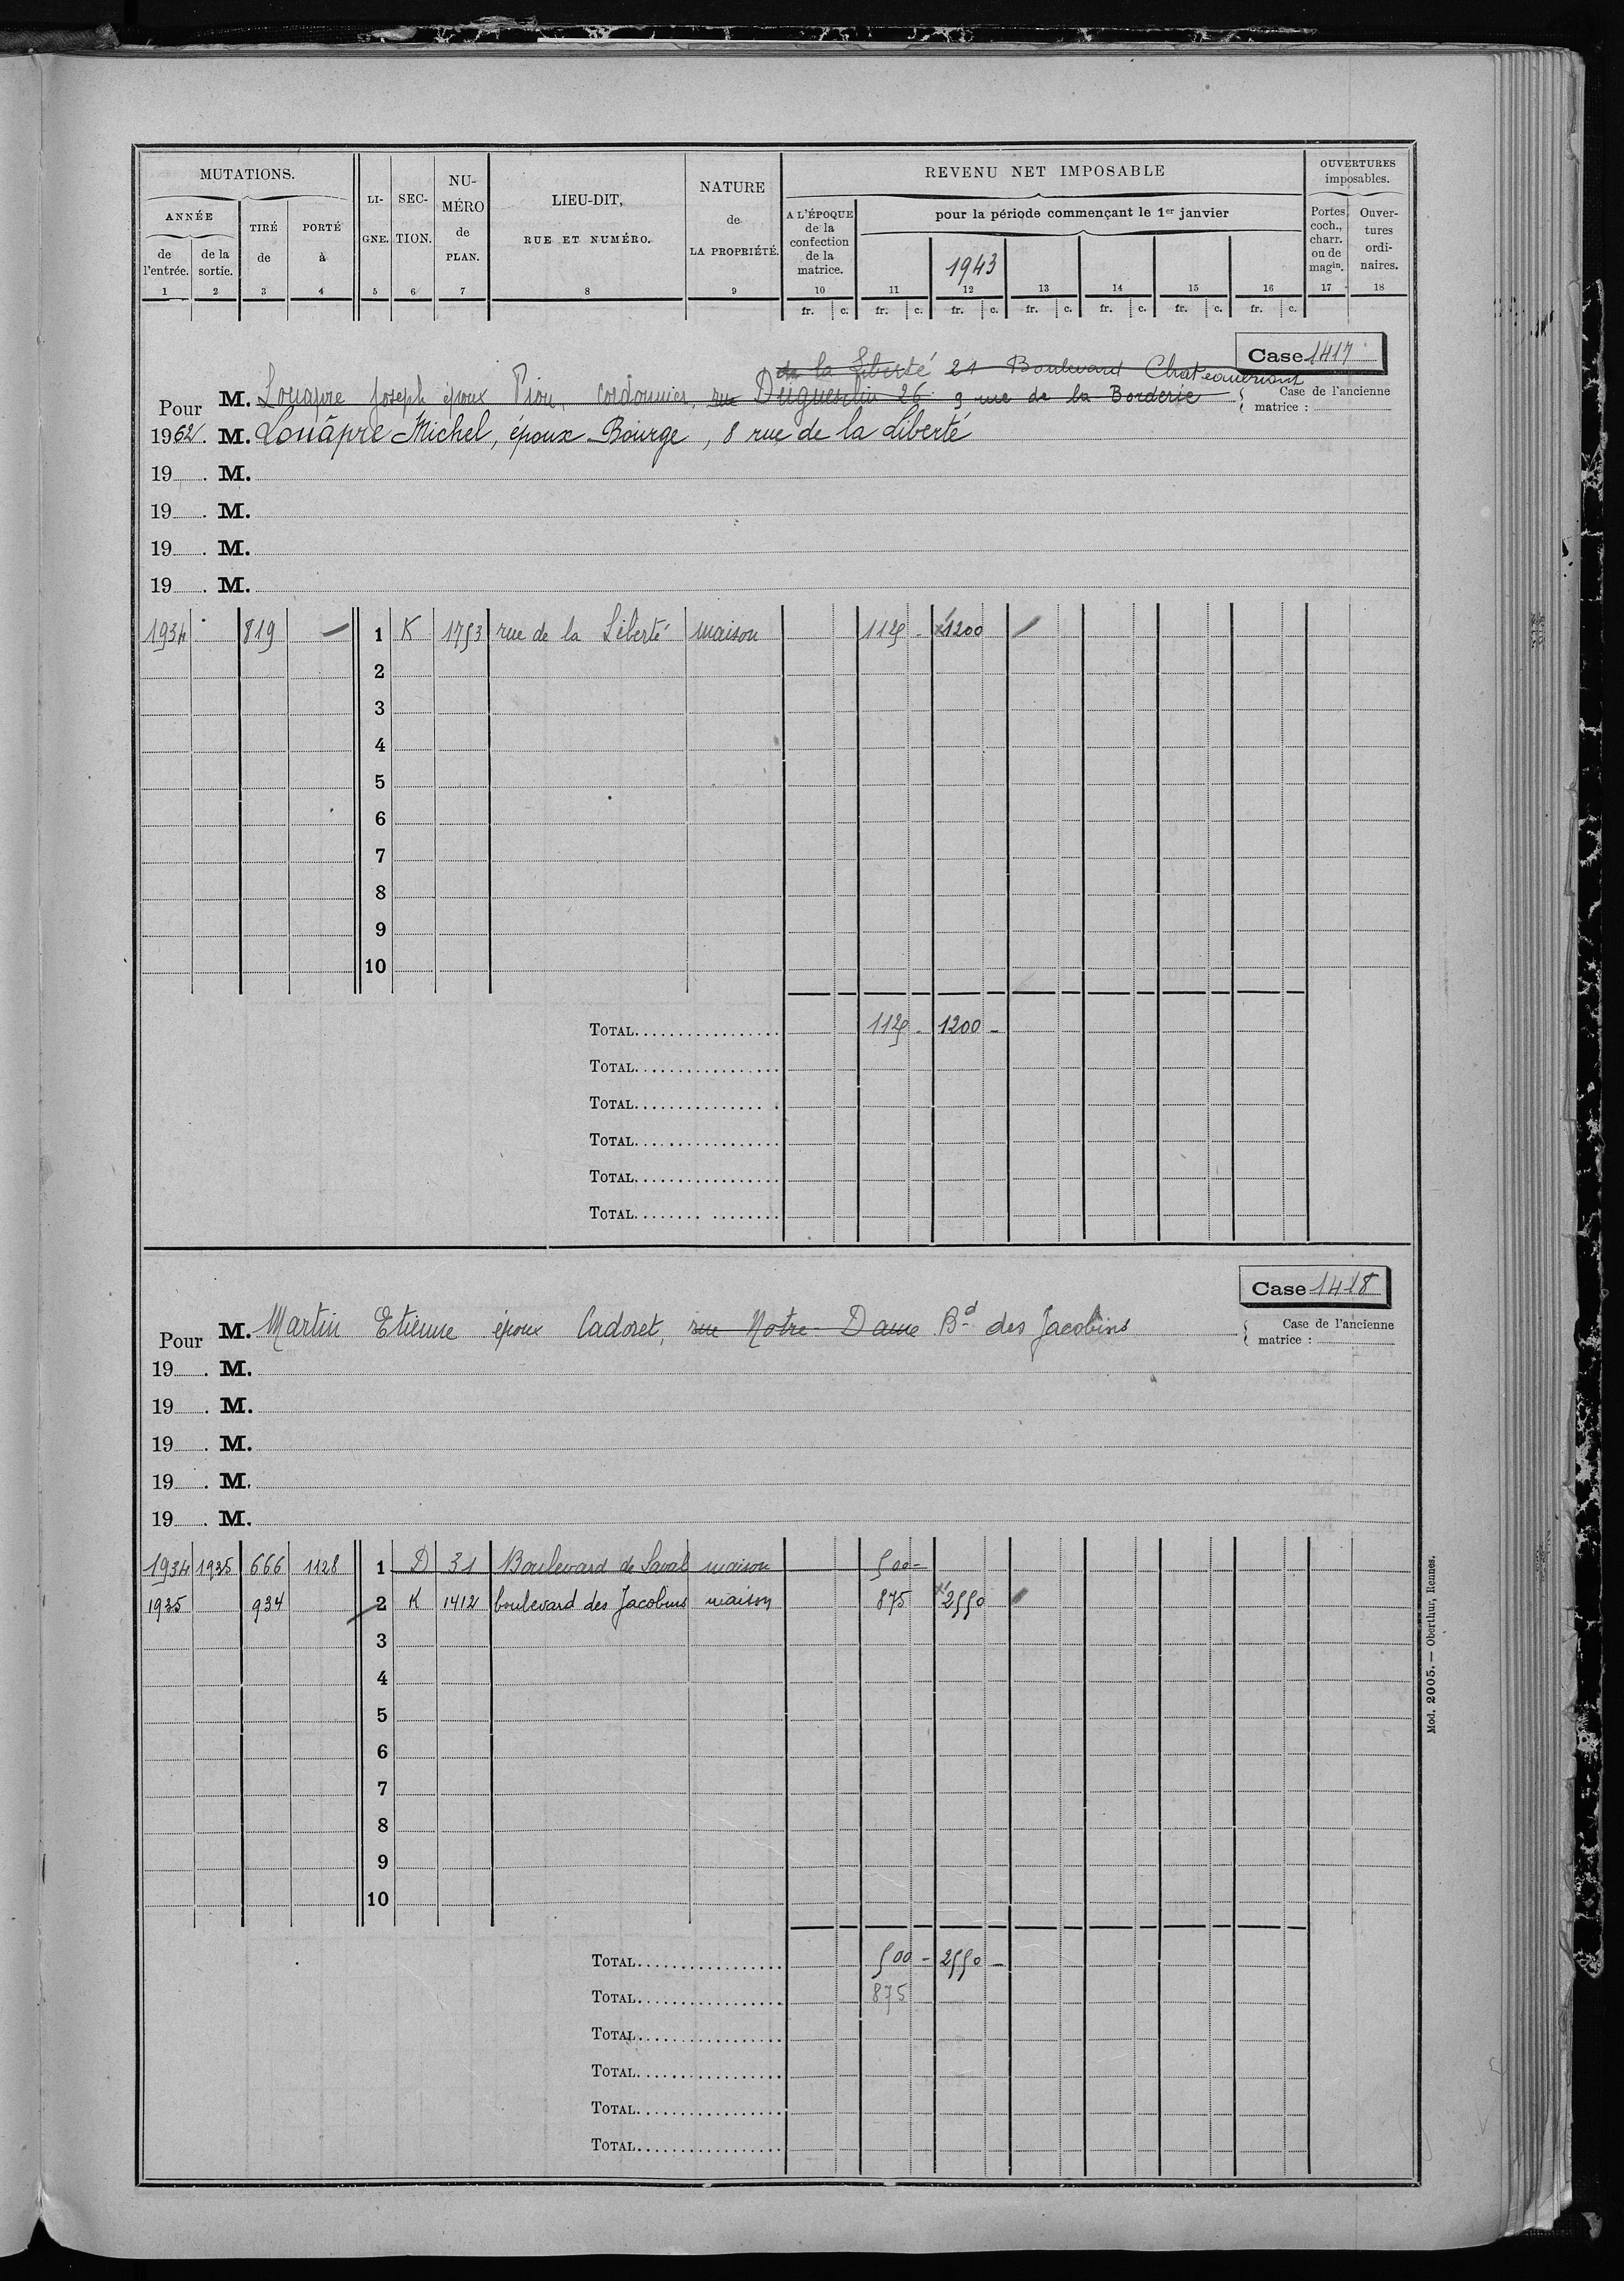 MUTATIONS.
ANNÉE
de l'entrée.
de la sortie.
TIRÉ de
PORTÉ à
LIGNE.
SECTION.
NUMÉRO de PLAN.
LIEU-DIT, RUE ET NUMÉRO.
NATURE de LA PROPRIÉTÉ.
REVENU NET IMPOSABLE
A L'ÉPOQUE de la confection de la matrice.
pour la période commençant le 1er janvier
1943
OUVERTURES imposables.
Portes coch., charr. ou de magin.
Ouvertures ordinaires.
1 2 3 4 5 6 7 8 9 10 11 12 13 14 15 16 17 18
fr. c. fr. c. fr. c. fr. c. fr. c. fr. c. fr. c.
Case 1417
de la Liberté 21 Boulevard Chateaubriant
Pour M. Louapre Joseph époux Piou, cordonnier, rue Duguesclin 26 9 rue de la Borderie
Case de l'ancienne matrice :
1962. M. Louâpre Michel, époux Bourge, 8 rue de la Liberté
19 . M.
19 . M.
19 . M.
19 . M.
1934 819 — 1 K 1753 rue de la Liberté maison 1125 - x1200
2
3
4
5
6
7
8
9
10
TOTAL 1125 - 1200 -
TOTAL
TOTAL
TOTAL
TOTAL
TOTAL
Case 1418
Pour M. Martin Etienne époux Cadoret, rue Notre Dame Bd des Jacobins
Case de l'ancienne matrice :
19 . M.
19 . M.
19 . M.
19 . M.
19 . M.
1934 1935 666 1128 1 D 31 Boulevard de Laval maison 500 -
1935 934 2 K 1412 boulevard des Jacobins maison 875 x2550
3
4
5
6
7
8
9
10
TOTAL 500 - 2550 -
TOTAL 875
TOTAL
TOTAL
TOTAL
TOTAL
Mod. 2005. — Oberthur, Rennes.